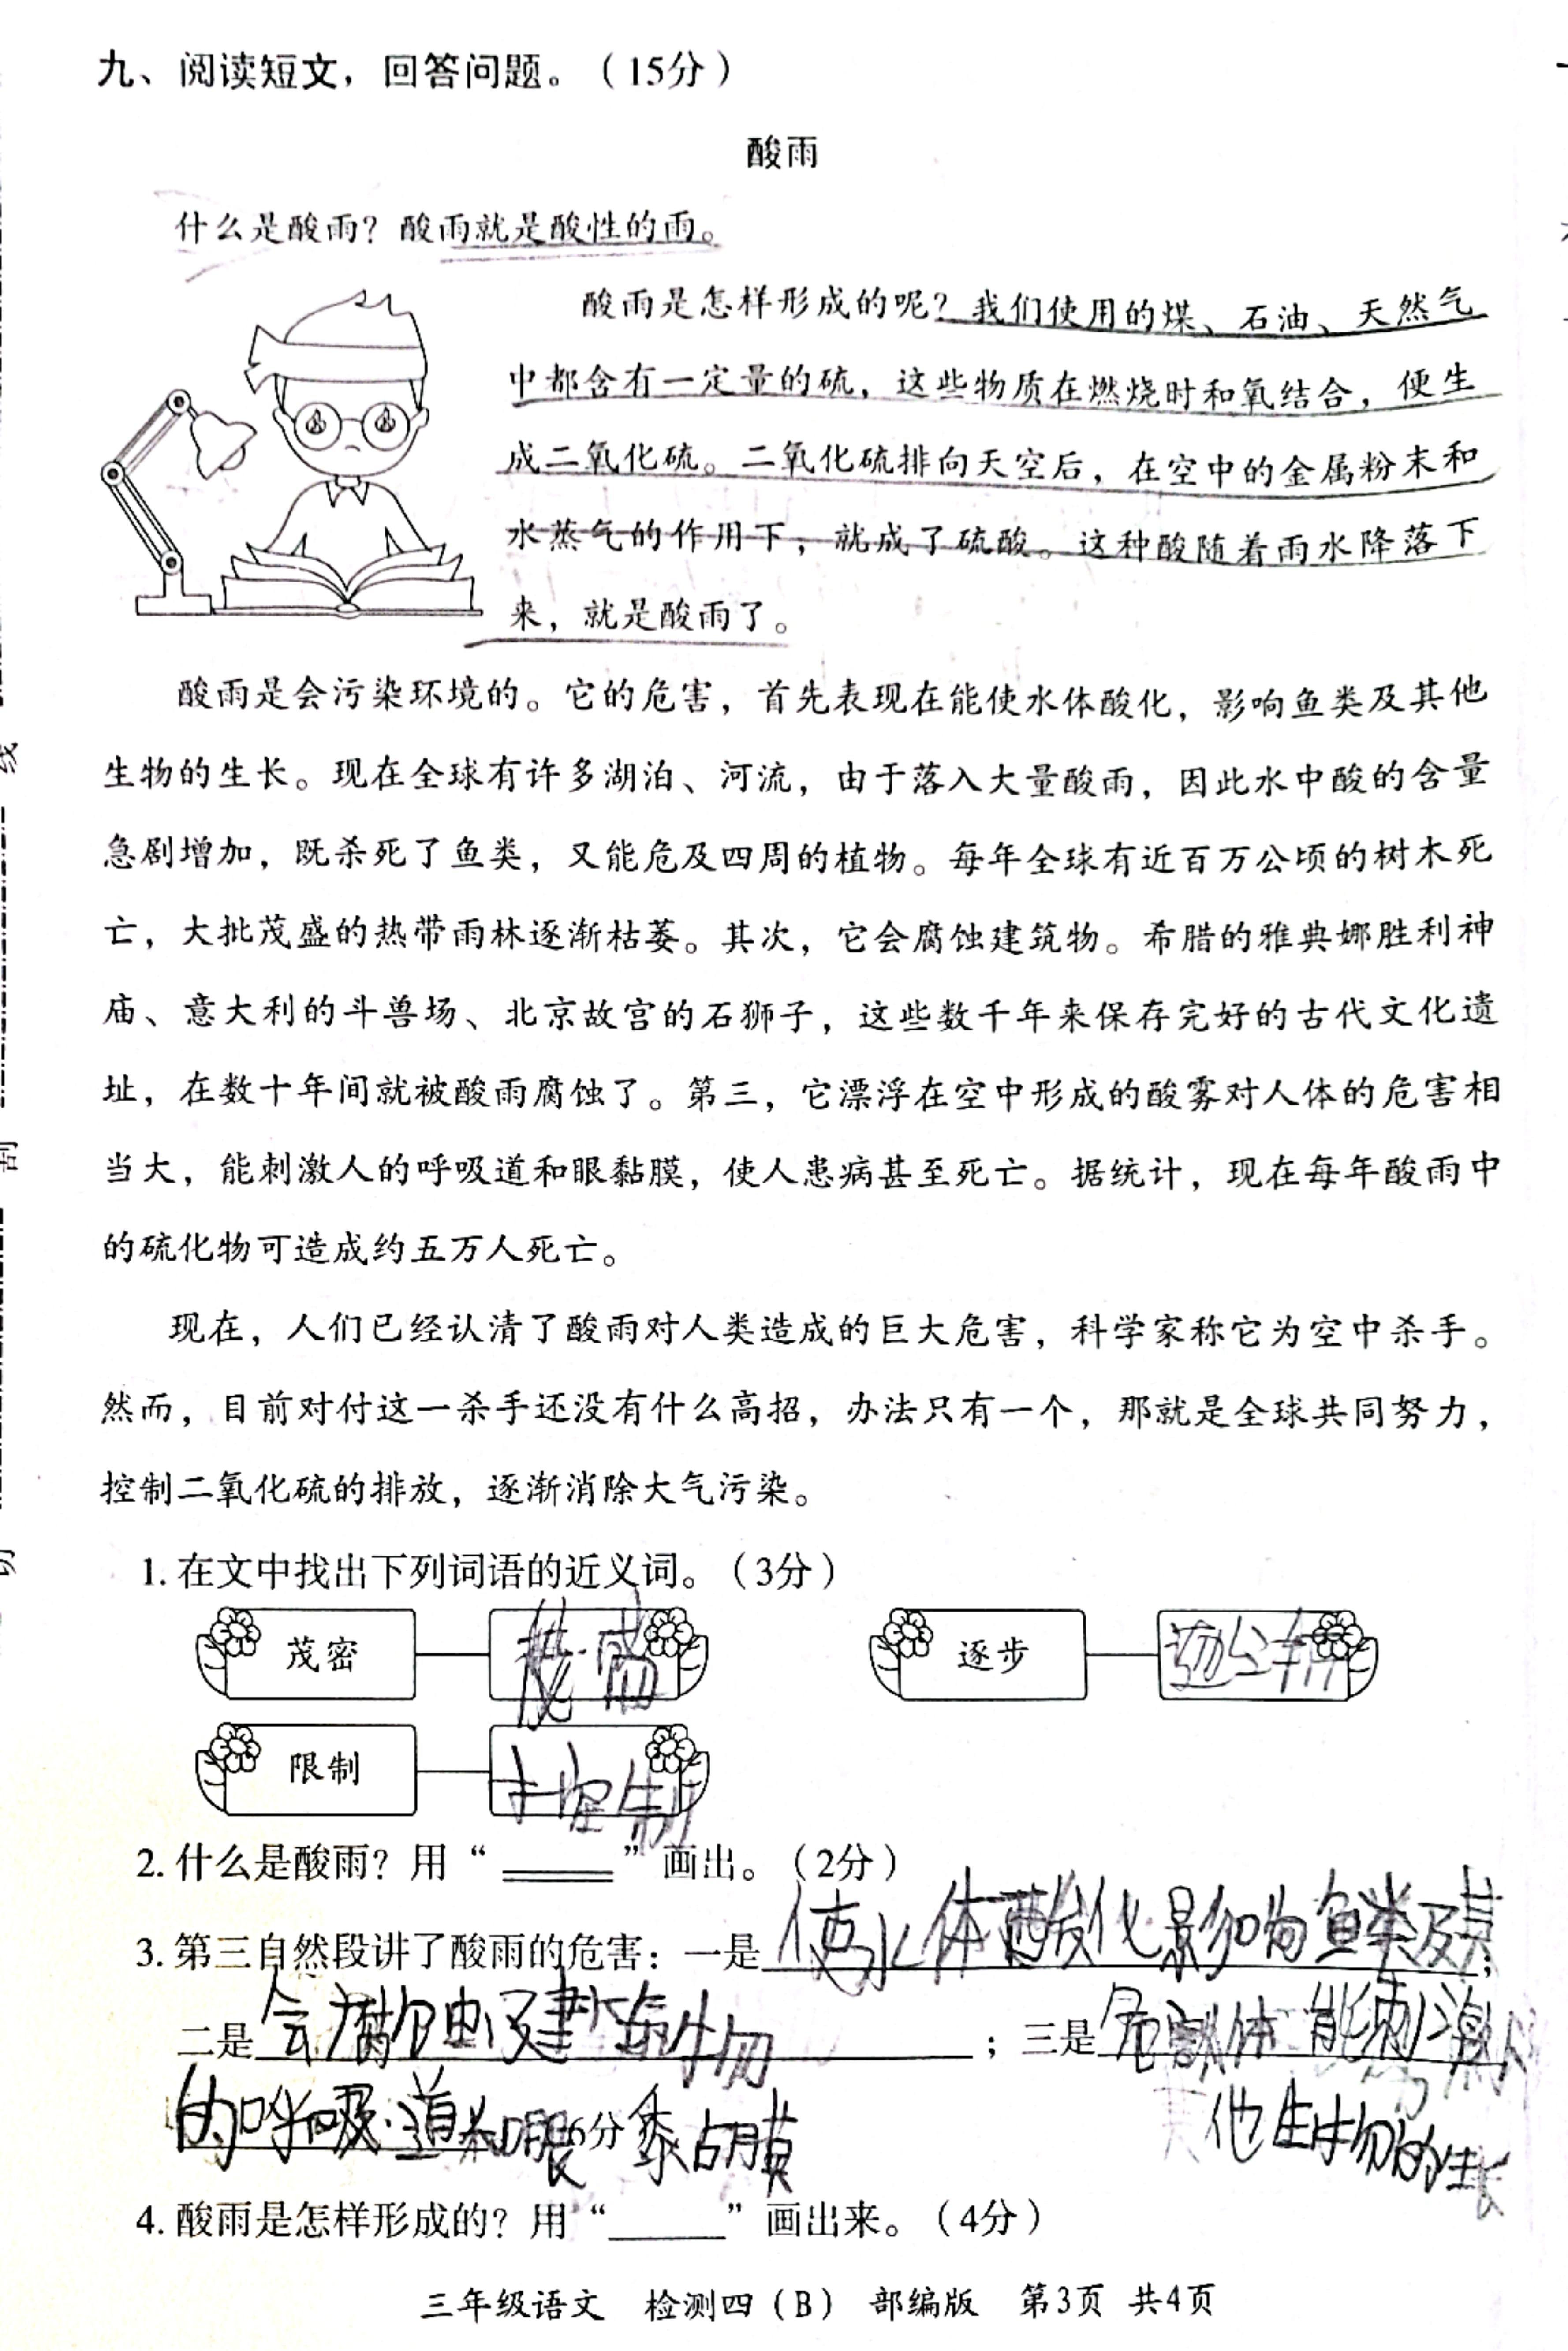 九、阅读短文，回答问题。（15分）
酸雨
什么是酸雨？酸雨就是酸性的雨。
酸雨是怎样形成的呢？我们使用的煤、石油、天然气
中都含有一定量的硫，这些物质在燃烧时和氧结合，便生
成二氧化硫。二氧化硫排向天空后，在空中的金属粉末和
水蒸气的作用下，就成了硫酸。这种酸随着雨水降落下
来，就是酸雨了。
酸雨是会污染环境的。它的危害，首先表现在能使水体酸化，影响鱼类及其他
生物的生长。现在全球有许多湖泊、河流，由于落入大量酸雨，因此水中酸的含量
急剧增加，既杀死了鱼类，又能危及四周的植物。每年全球有近百万公顷的树木死
亡，大批茂盛的热带雨林逐渐枯萎。其次，它会腐蚀建筑物。希腊的雅典娜胜利神
庙、意大利的斗兽场、北京故宫的石狮子，这些数千年来保存完好的古代文化遗
址，在数十年间就被酸雨腐蚀了。第三，它漂浮在空中形成的酸雾对人体的危害相
当大，能刺激人的呼吸道和眼黏膜，使人患病甚至死亡。据统计，现在每年酸雨中
的硫化物可造成约五万人死亡。
现在，人们已经认清了酸雨对人类造成的巨大危害，科学家称它为空中杀手。
然而，目前对付这一杀手还没有什么高招，办法只有一个，那就是全球共同努力，
控制二氧化硫的排放，逐渐消除大气污染。
1. 在文中找出下列词语的近义词。（3分）
茂密 茂盛 逐步
限制 控制
2. 什么是酸雨？用“＿＿”画出。（2分）
3. 第三自然段讲了酸雨的危害：一是使水体酸化影响鱼类及其；
二是会腐蚀建筑物；三是危害人体 能刺激人
的呼吸道和眼黏膜 6分 他生物的生长
4. 酸雨是怎样形成的？用“＿＿”画出来。（4分）
三年级语文 检测四（B） 部编版 第3页 共4页
线
剖
切